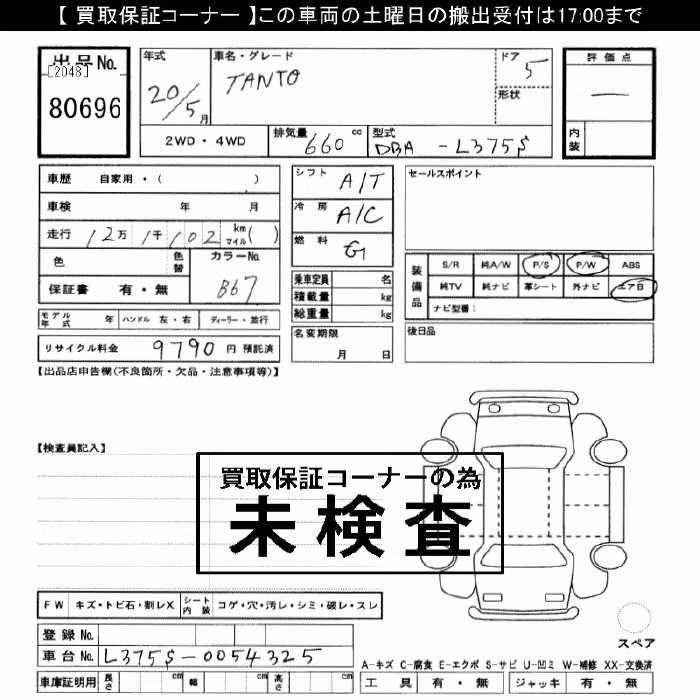 【 買取保証コーナー 】この車両の土曜日の搬出受付は17:00まで
出品No.
[2048]
80696
年式
20/5月
車名・グレード
TANTO
ドア
5
形状
評価点
—
内装
2WD・4WD
排気量
660 cc
型式
DBA-L375S
車歴 自家用・( )
車検 年 月
走行 12万 1千 102 km マイル( )
色
色替
カラーNo.
B67
保証書 有・無
モデル年式 年 ハンドル 左・右 ディーラー・並行
リサイクル料金 9790 円 預託済
シフト A/T
冷房 A/C
燃料 G
乗車定員 名
積載量 kg
総重量 kg
名変期限
月 日
セールスポイント
装備品
S/R 純A/W P/S P/W ABS
純TV 純ナビ 革シート 外ナビ エアB
ナビ型番:
後日品
【出品店申告欄(不良箇所・欠品・注意事項等)】
【検査員記入】
買取保証コーナーの為
未検査
FW キズ・トビ石・割レX シート内装 コゲ・穴・汚レ・シミ・破レ・スレ
登録No.
車台No. L375S-0054325
車庫証明用 長さ cm 幅 cm 高さ cm
スペア
A-キズ C-腐食 E-エクボ S-サビ U-凹ミ W-補修 XX-交換済
工具 有・無 ジャッキ 有・無